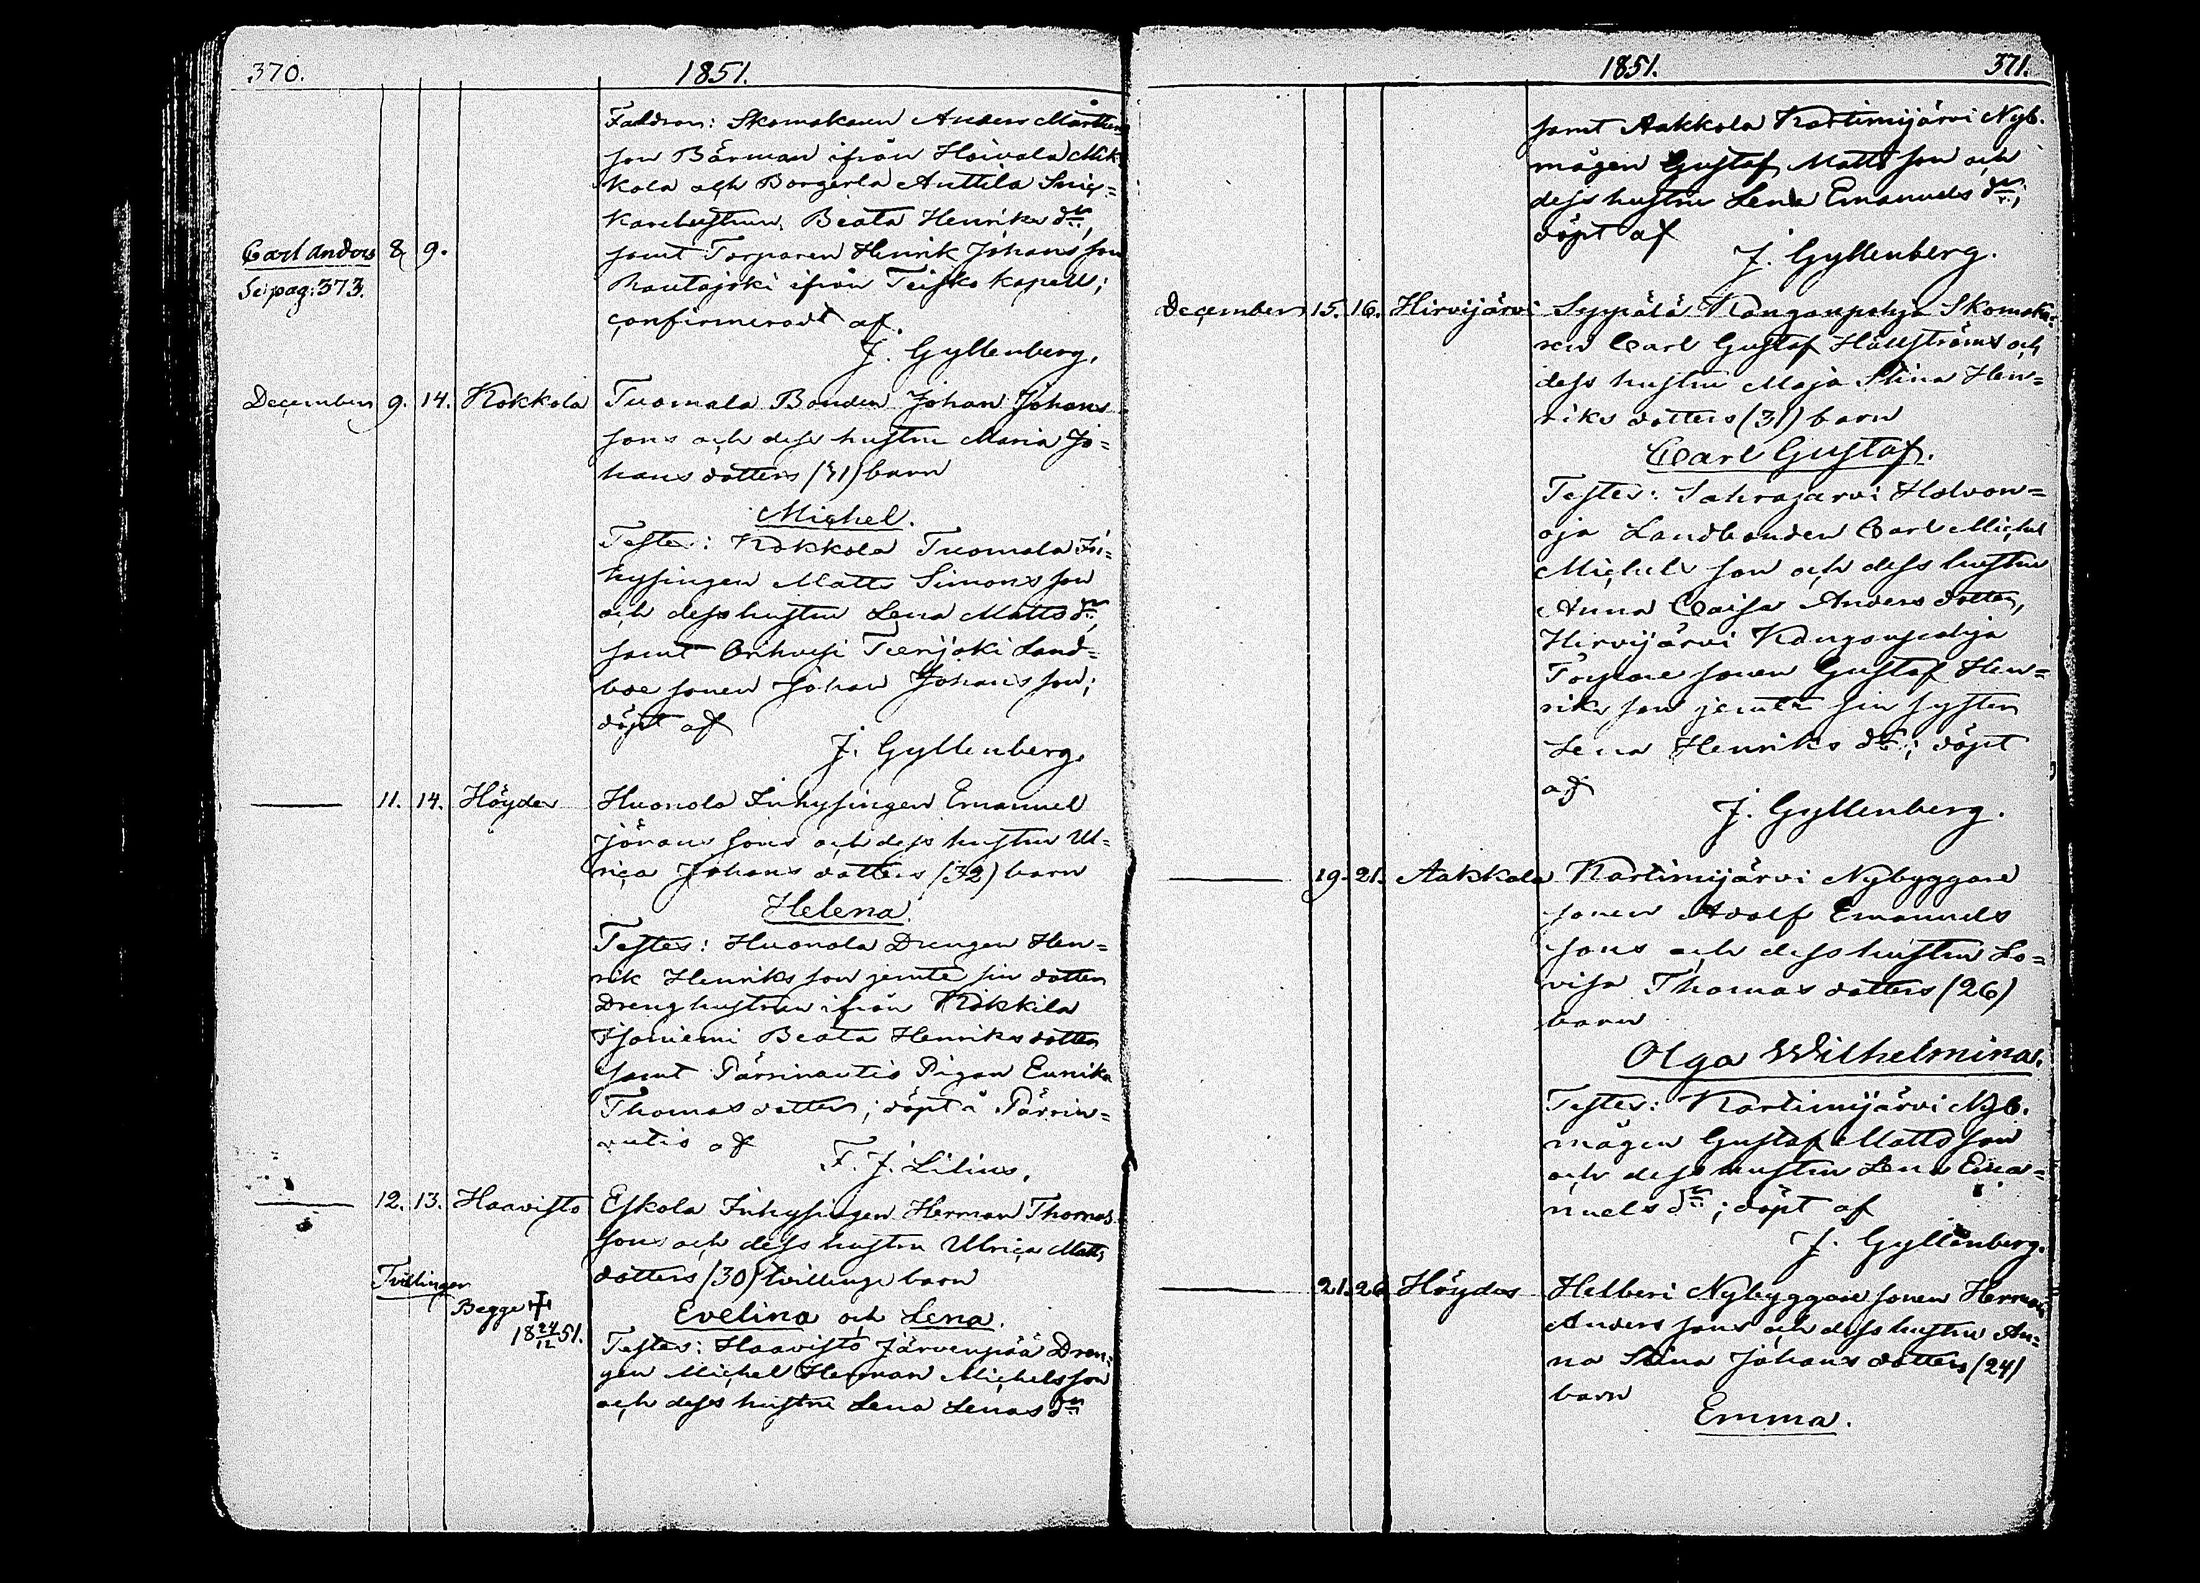 370.
1851.
Faddrar: Skomakaren Anders Mårtens
son Bärman ifrån Hoivala Mik
kola och Borgerla Anttila Snic=
karehustrun Beata Henriks dr,
Carl Anders 8 9. samt Torparen Henrik Johans son
Se: pag: 373. Rautajoki ifrån Teisko kapell;
confirmeradt af
J. Gyllenberg.
December 9. 14. Kokkola Tuomala Bonden Johan Johans
sons och dess hustru Maria Jo=
hans dotters (31) barn
Michel.
Testes: Kokkola Tuomala In=
hysingen Matts Simons son
och dess hustru Lena Matts dr,
samt Orihvesi Land=
boe sonen Johan Johans son;
döpt af
J. Gyllenberg.
11. 14. Höyden Huonola Inhysingen Emanuel
Jörans sons och dess hustru Ul=
rica Johans dotters (32) barn
Helena.
Testes: Huonola Drengen Hen=
rik Henriks son jemte sin dotter
Dreng hustrun ifrån Kokkila
Isoniemi Beata Henriks dotter
samt Pärrinautis Pigan Eunika
Thomas dotter; döpt i Pärrin=
autis af
F. J. Lilius.
12. 13. Haavisto Eskola Inhysingen Herman Thomas
sons och dess hustru Ulrica Matts
Tvillingar dotters (30) tvillinge barn
Begge ✝ Evelina och Lena.
18 24/12 51. Testes: Haavisto Järvenpää Dren=
gen Michel Herman Michels son
och dess hustru Lena Lenas dr
1851.
371.
samt Aakkola Kortimijärvi Nyb.
mågen Gustaf Matts son och
dess hustru Lena Emanuels dr;
döpt af
J. Gyllenberg.
December 15. 16. Hirvijärvi Seppälä Kangonpohja Skomaka=
ren Carl Gustaf Hällströms och
dess hustru Maja Stina Hen=
riks dotters (31) barn
Carl Gustaf.
Testes: Sahrajarvi Holvon=
oja Landbonden Carl Michel
Michels son och dess hustru
Anna Caisa Anders dotter,
Hirvijärvi Kangonpohja
Torpare sonen Gustaf Hen=
riks son jemte sin syster
Lena Henriks dr; döpt
af
J. Gyllenberg.
19. 21. Aakkola Kortimijärvi Nybyggare
sonen Adolf Emanuels
sons och dess hustru Lo=
visa Thomas dotters (26)
barn
Olga Wilhelmina.
Testes: Kortimijärvi Nyb.
mågen Gustaf Matts son
och dess hustru Lena Ema=
nuels dr; döpt af
J. Gyllenberg.
21. 26 Höyden Helberi Nybyggare sonen Herman
Anders sons och dess hustru An=
na Stina Johans dotters (24)
barn
Emma.